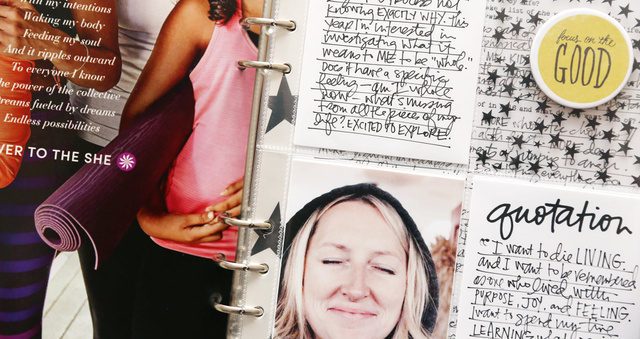 with my intentions
Waking my body
Feeding my soul
And it ripples outward
To everyone I know
The power of the collective
Dreams fueled by dreams
Endless possibilities
VER TO THE SHE
KNOWING EXACTLY WHY. This
year I'm interested in
investigating what it
means to ME to be "whole."
Does it have a specific
feeling – am I whole
now – what's missing
from all the pieces of my
life? EXCITED TO EXPLORE.
focus on the
GOOD
quotation
"I want to die LIVING.
and I want to be remembered
as one who lived with
PURPOSE, JOY, and FEELING.
I want to spend my time
LEARNING